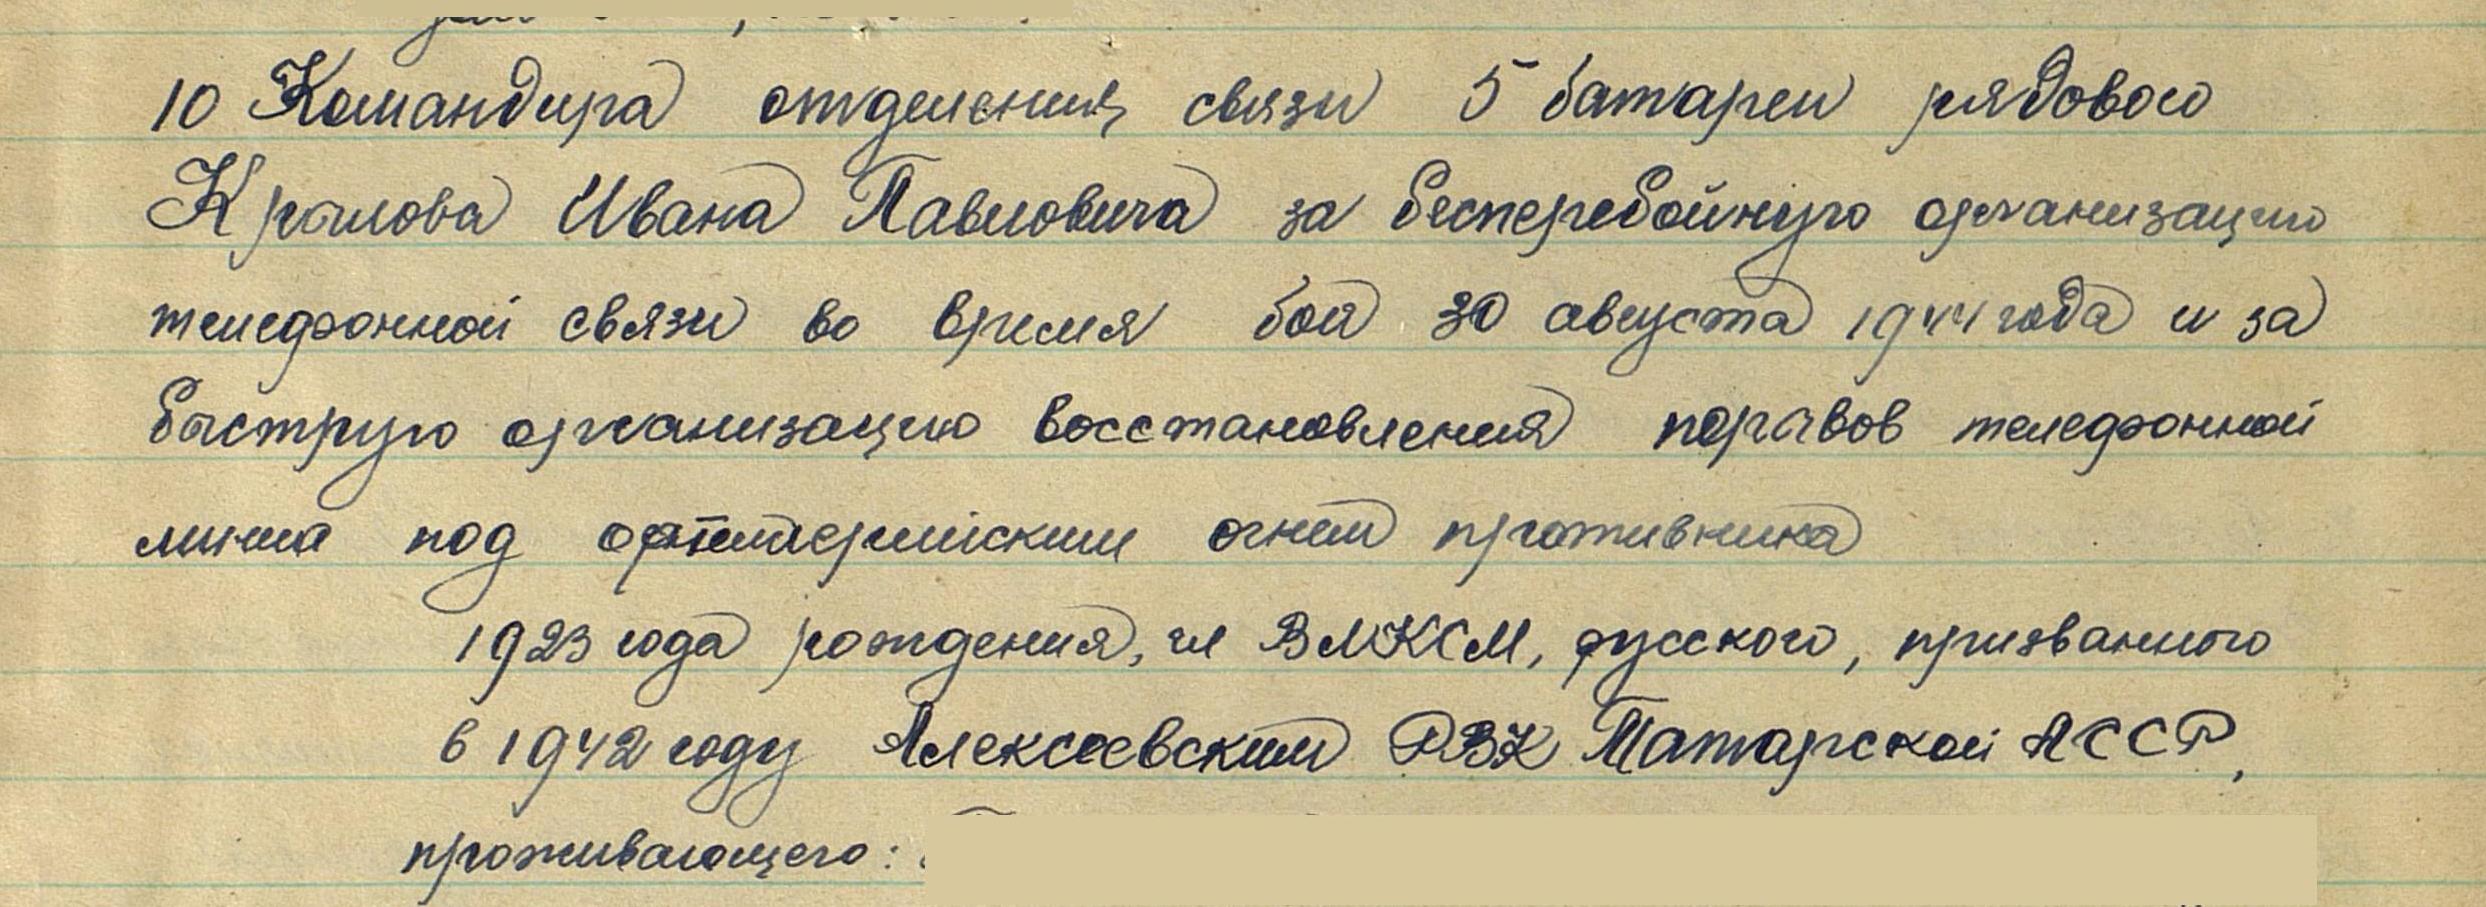 10 Командира отделения связи 5 батареи рядового
Кралова Ивана Павловича за бесперебойную организацию
телефонной связи во время боя 30 августа 1944 года и за
быструю организацию восстановления поравов телефонной
линии под артиллерийским огнем противника
1923 года рождения, чл ВЛКСМ, русского, призванного
в 1942 году Алексеевским РВК Татарской АССР,
проживающего: